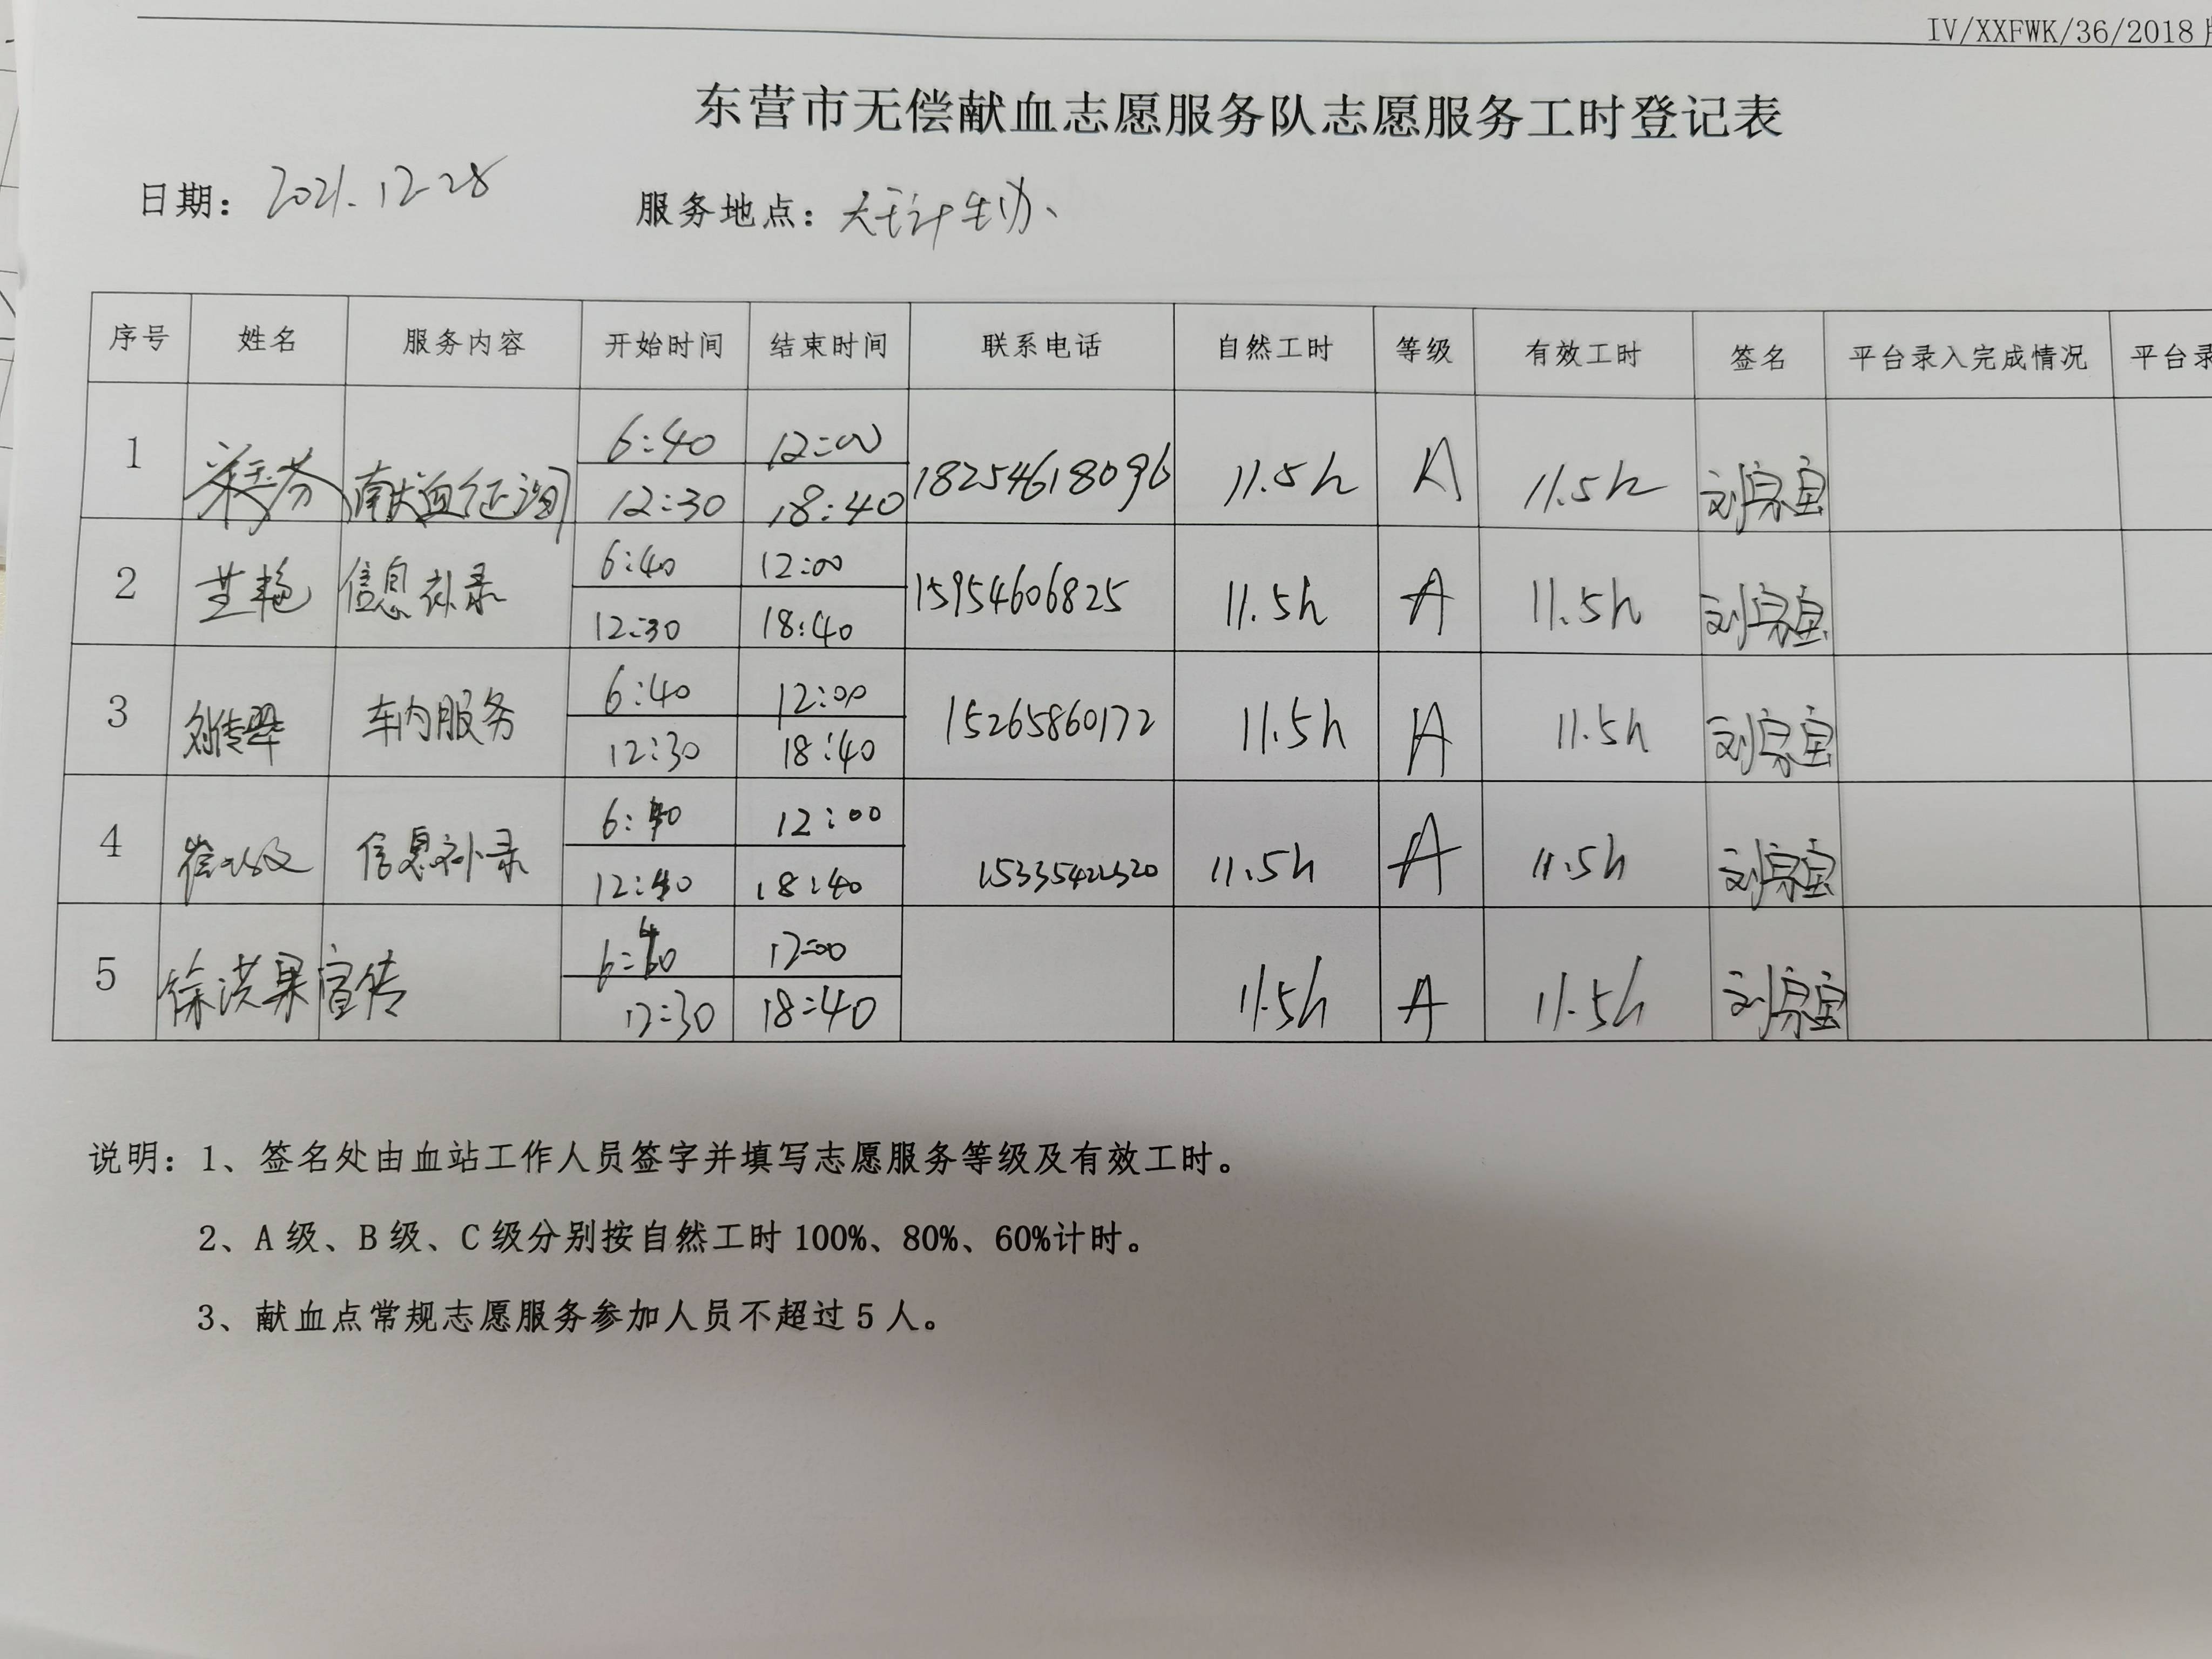 IV/XXFWK/36/2018
东营市无偿献血志愿服务队志愿服务工时登记表
日期: 2021.12-28 服务地点: 计生办、
序号 姓名 服务内容 开始时间 结束时间 联系电话 自然工时 等级 有效工时 签名 平台录入完成情况 平台录
6:40 12:00
1 献血征询 18254618096 11.5h A 11.5h 刘宗宝
12:30 18:40
6:40 12:00
2 信息补录 15954606825 11.5h A 11.5h 刘宗宝
12:30 18:40
6:40 12:00
3 车内服务 15265860172 11.5h A 11.5h 刘宗宝
12:30 18:40
6:40 12:00
4 信息补录 11.5h A 11.5h 刘宗宝
12:40 18:40
6:40 12:00
5 徐洪果 宣传 11.5h A 11.5h 刘宗宝
12:30 18:40
说明: 1、签名处由血站工作人员签字并填写志愿服务等级及有效工时。
2、A 级、B 级、C 级分别按自然工时 100%、80%、60%计时。
3、献血点常规志愿服务参加人员不超过 5 人。